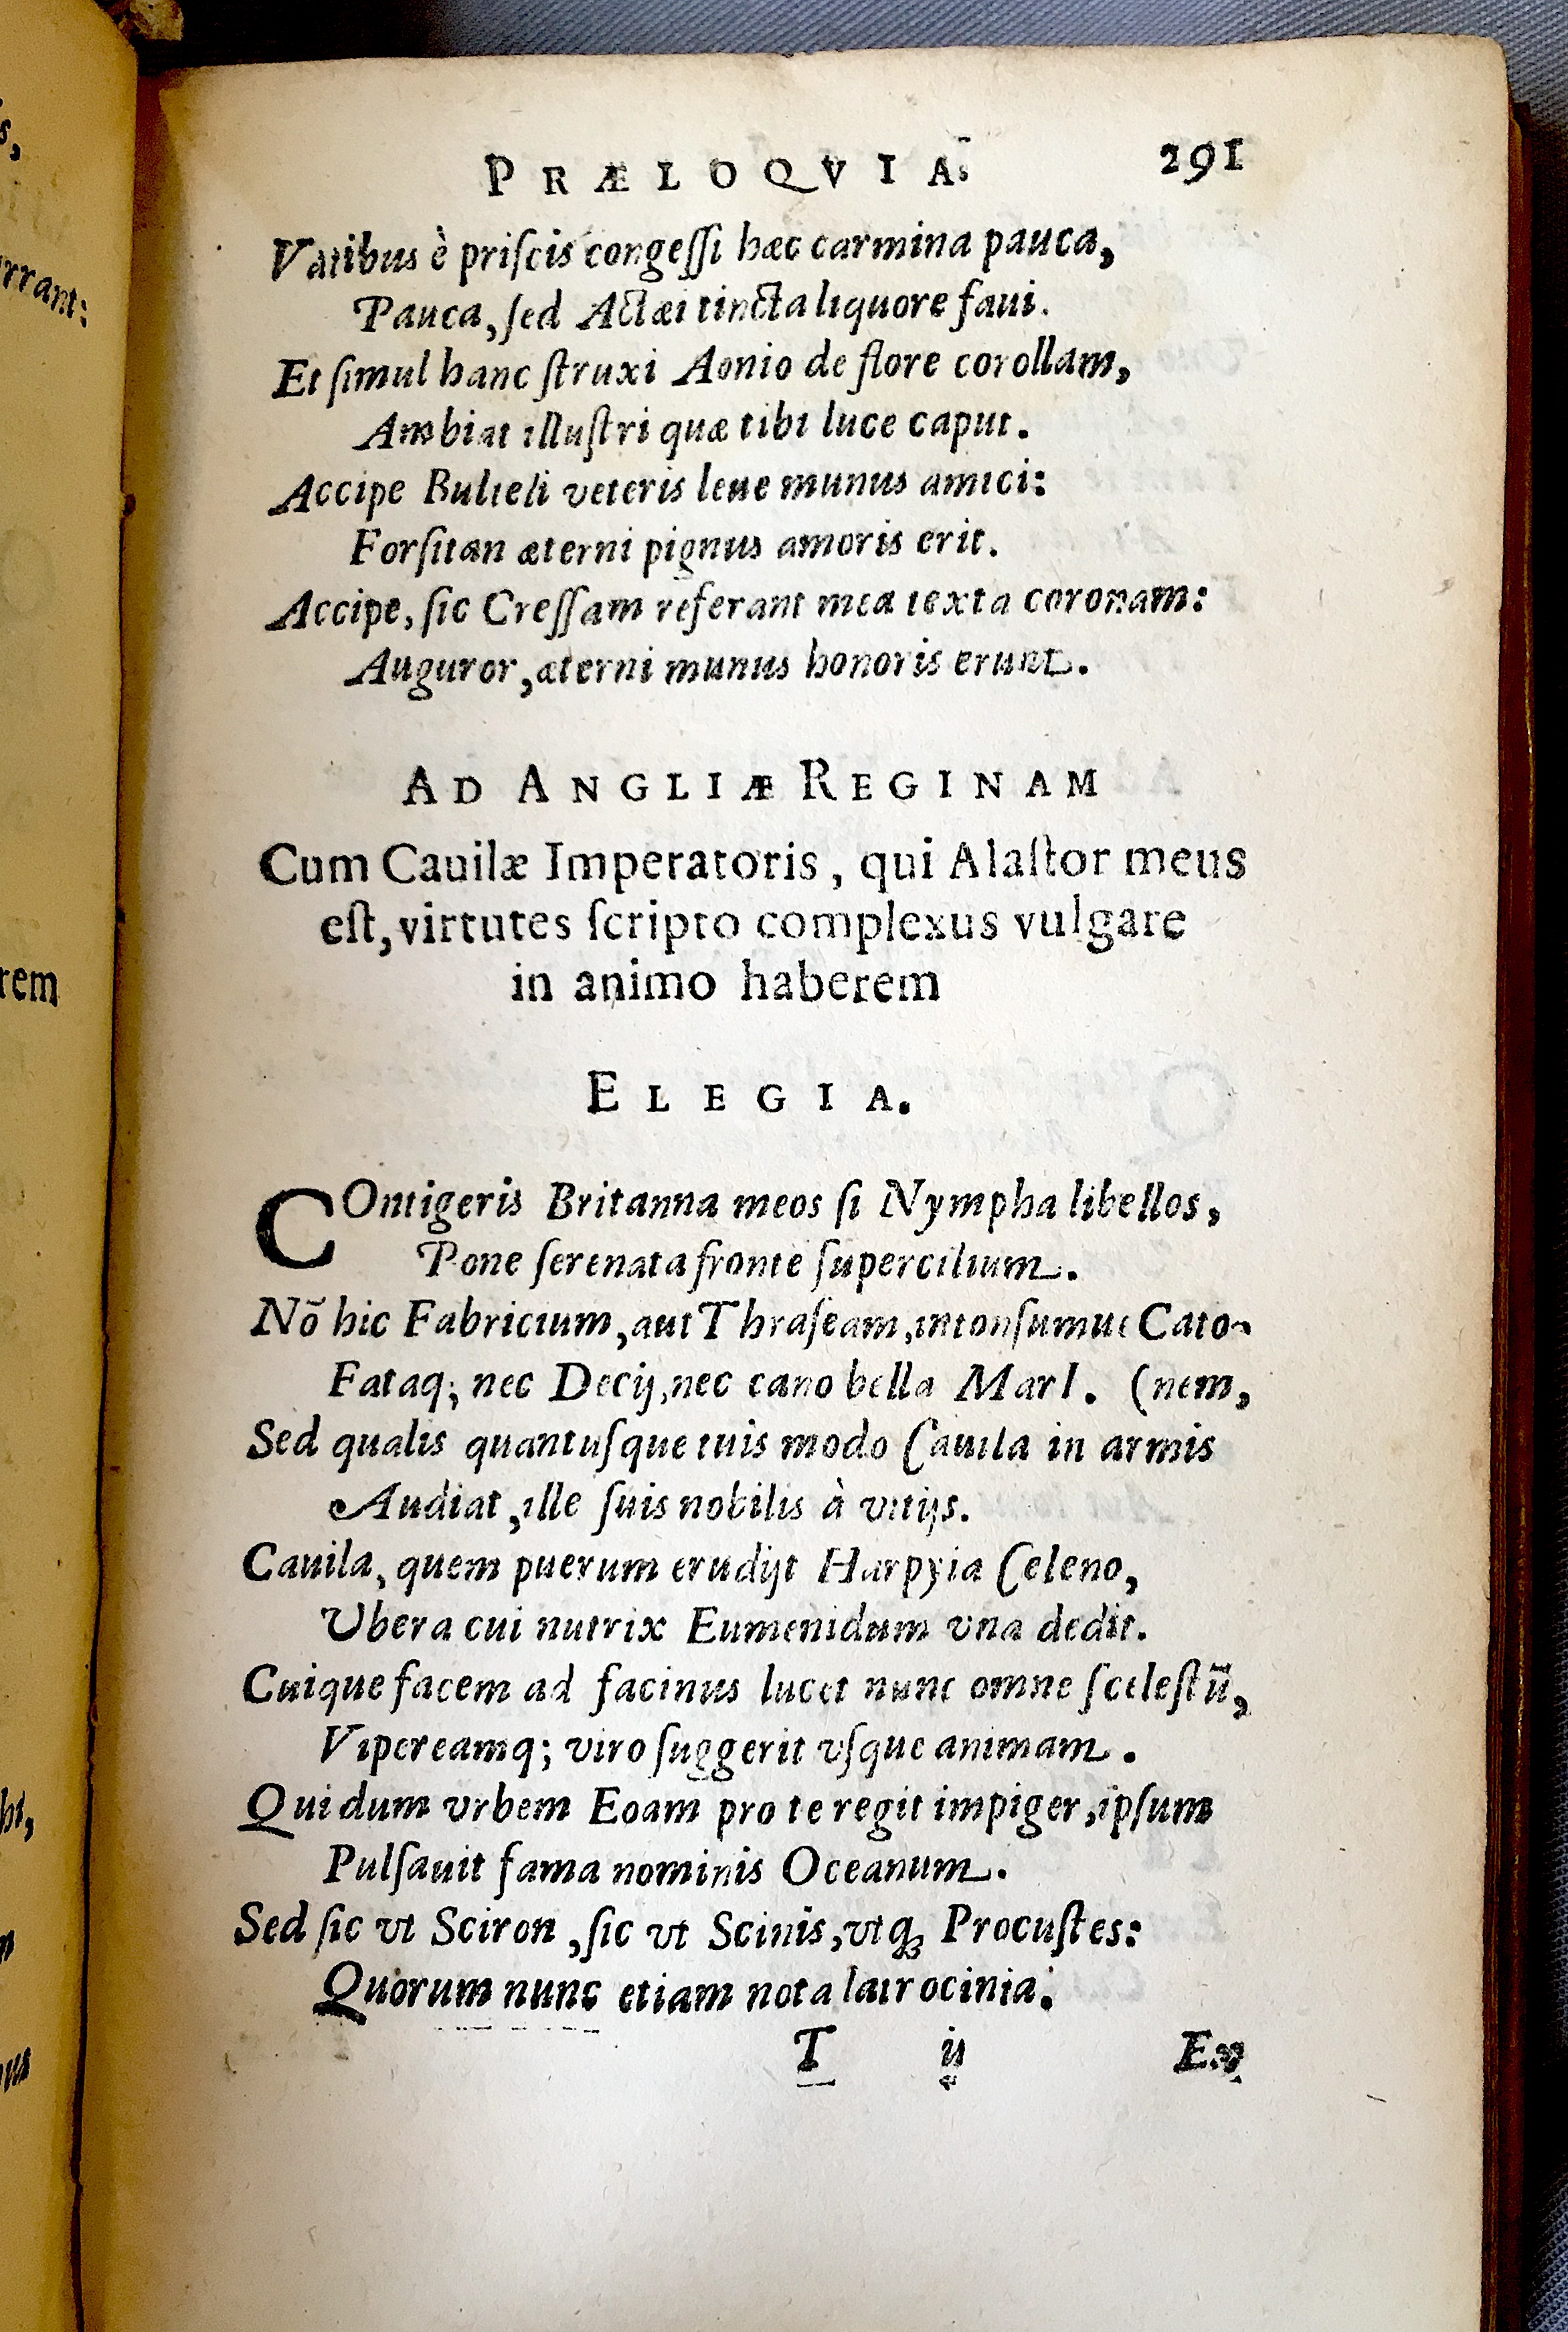 PRÆLOQVIA. 291
Vatibus è priſcis congeſſi hæc carmina pauca,
Pauca, ſed Actæi tincta liquore faui.
Et ſimul hanc ſtruxi Aonio de flore corollam,
Ambiat illuſtri quæ tibi luce caput.
Accipe Bulieli veteris leue munus amici:
Forſitan æterni pignus amoris erit.
Accipe, ſic Creſſam referant mea texta coronam:
Auguror, æterni munus honoris erunt.
AD ANGLIÆ REGINAM
Cum Cauilæ Imperatoris, qui Alaſtor meus
eſt, virtutes ſcripto complexus vulgare
in animo haberem
ELEGIA.
COntigeris Britanna meos ſi Nympha libellos,
Pone ſerenata fronte ſupercilium.
Nō hic Fabricium, aut Thraſeam, intonſumue Cato-
Fataq; nec Decij, nec cano bella Mari. (nem,
Sed qualis quantuſque tuis modo Cauila in armis
Audiat, ille ſuis nobilis à vitijs.
Cauila, quem puerum erudijt Harpyia Celeno,
Vbera cui nutrix Eumenidum vna dedit.
Cuique facem ad facinus lucet nunc omne ſceleſtū,
Vipereamq; viro ſuggerit vſque animam.
Qui dum vrbem Eoam pro te regit impiger, ipſum
Pulſauit fama nominis Oceanum.
Sed ſic vt Sciron, ſic vt Scinis, vtq; Procuſtes:
Quorum nunc etiam nota latrocinia.
T ij Ex
rrant:
rem